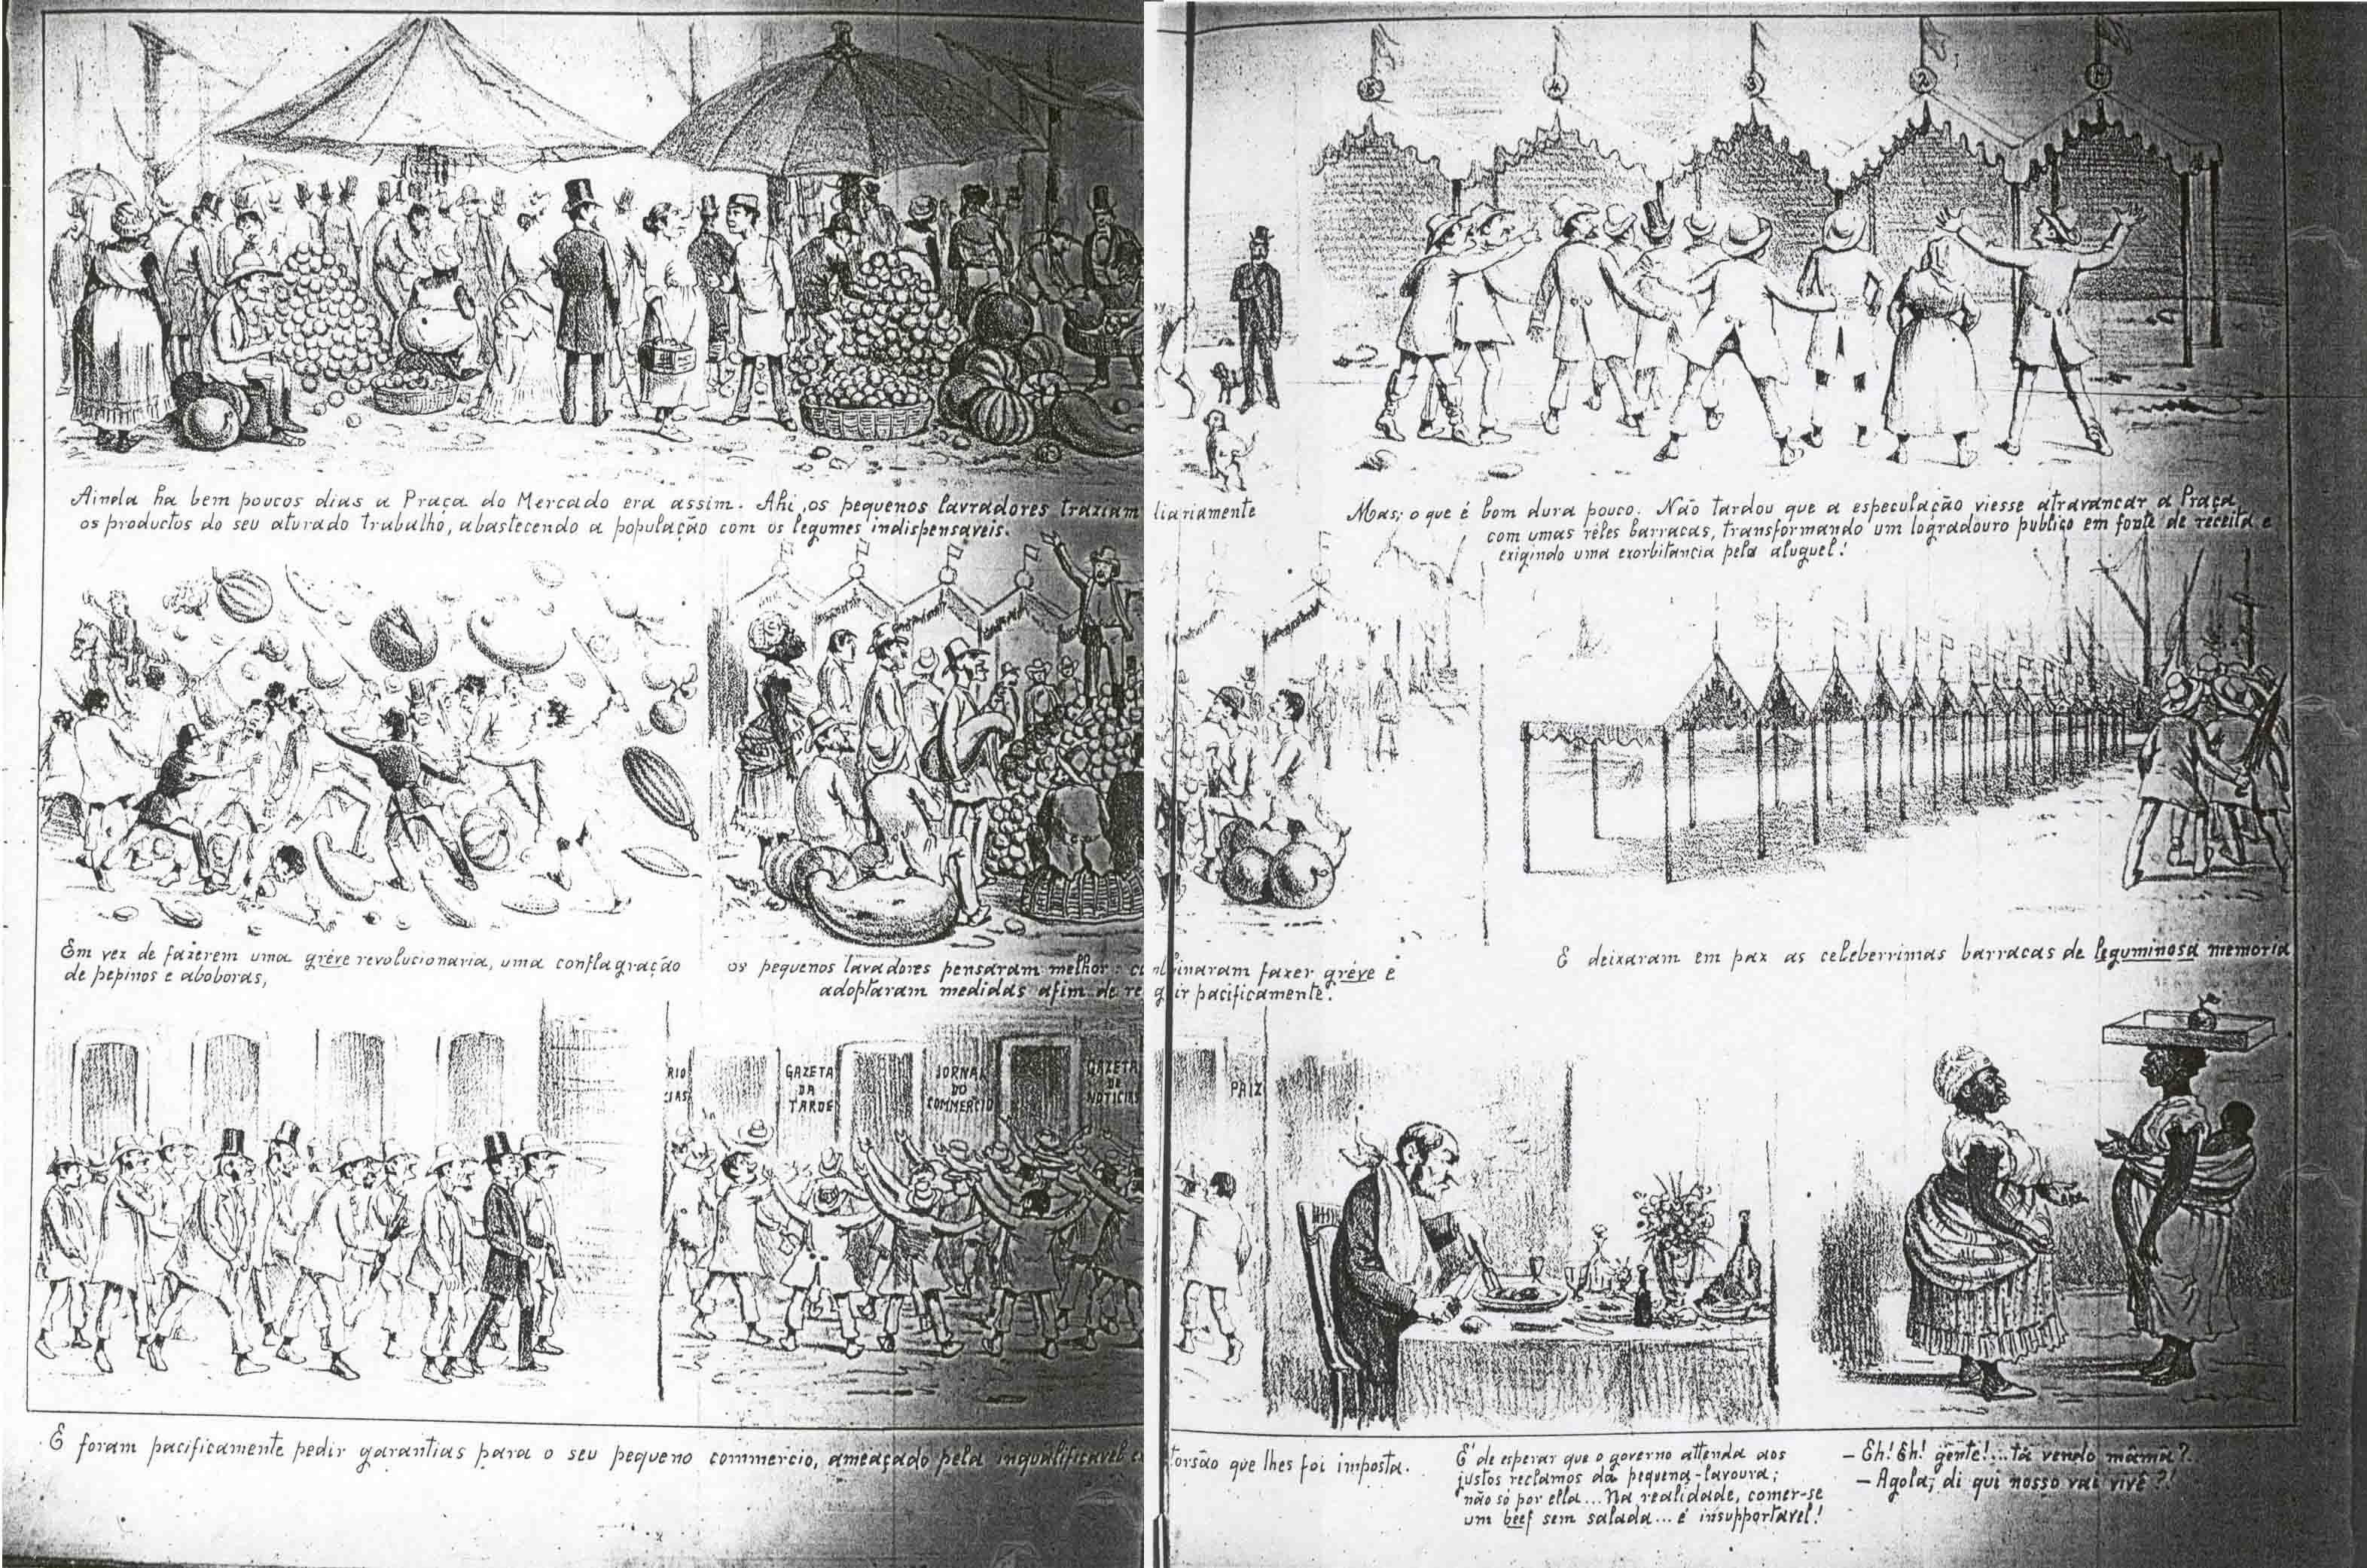 5 4 3 2 1
Ainda ha bem poucos dias a Praça do Mercado era assim. Ahi, os pequenos lavradores traziam diariamente
os productos do seu aturado trabalho, abastecendo a população com os legumes indispensaveis.
Mas; o que é bom dura pouco. Não tardou que a especulação viesse atravancar a Praça
com umas réles barracas, transformando um logradouro publico em fonte de receita e
exigindo uma exorbitancia pela aluguel!
Em vez de fazerem uma gréve revolucionaria, uma conflagração
de pepinos e aboboras,
os pequenos lavradores pensaram melhor: combinaram fazer gréve e
adoptaram medidas afim de reagir pacificamente.
E deixaram em paz as celeberrimas barracas de leguminosa memoria
RIO
IAS
GAZETA
DA
TARDE
JORNAL
DO
COMMERCIO
GAZETA
DE
NOTICIAS
PAIZ
E foram pacificamente pedir garantias para o seu pequeno commercio, ameaçado pela inqualificavel extorsão que lhes foi imposta.
E' de esperar que o governo attenda aos
justos reclamos da pequena-lavoura;
não só por ella... Na realidade, comer-se
um beef sem salada... é insupportavel!
— Eh! Eh! gente!... tá vendo māmā?
— Agola, di qui nosso vai vivê?!